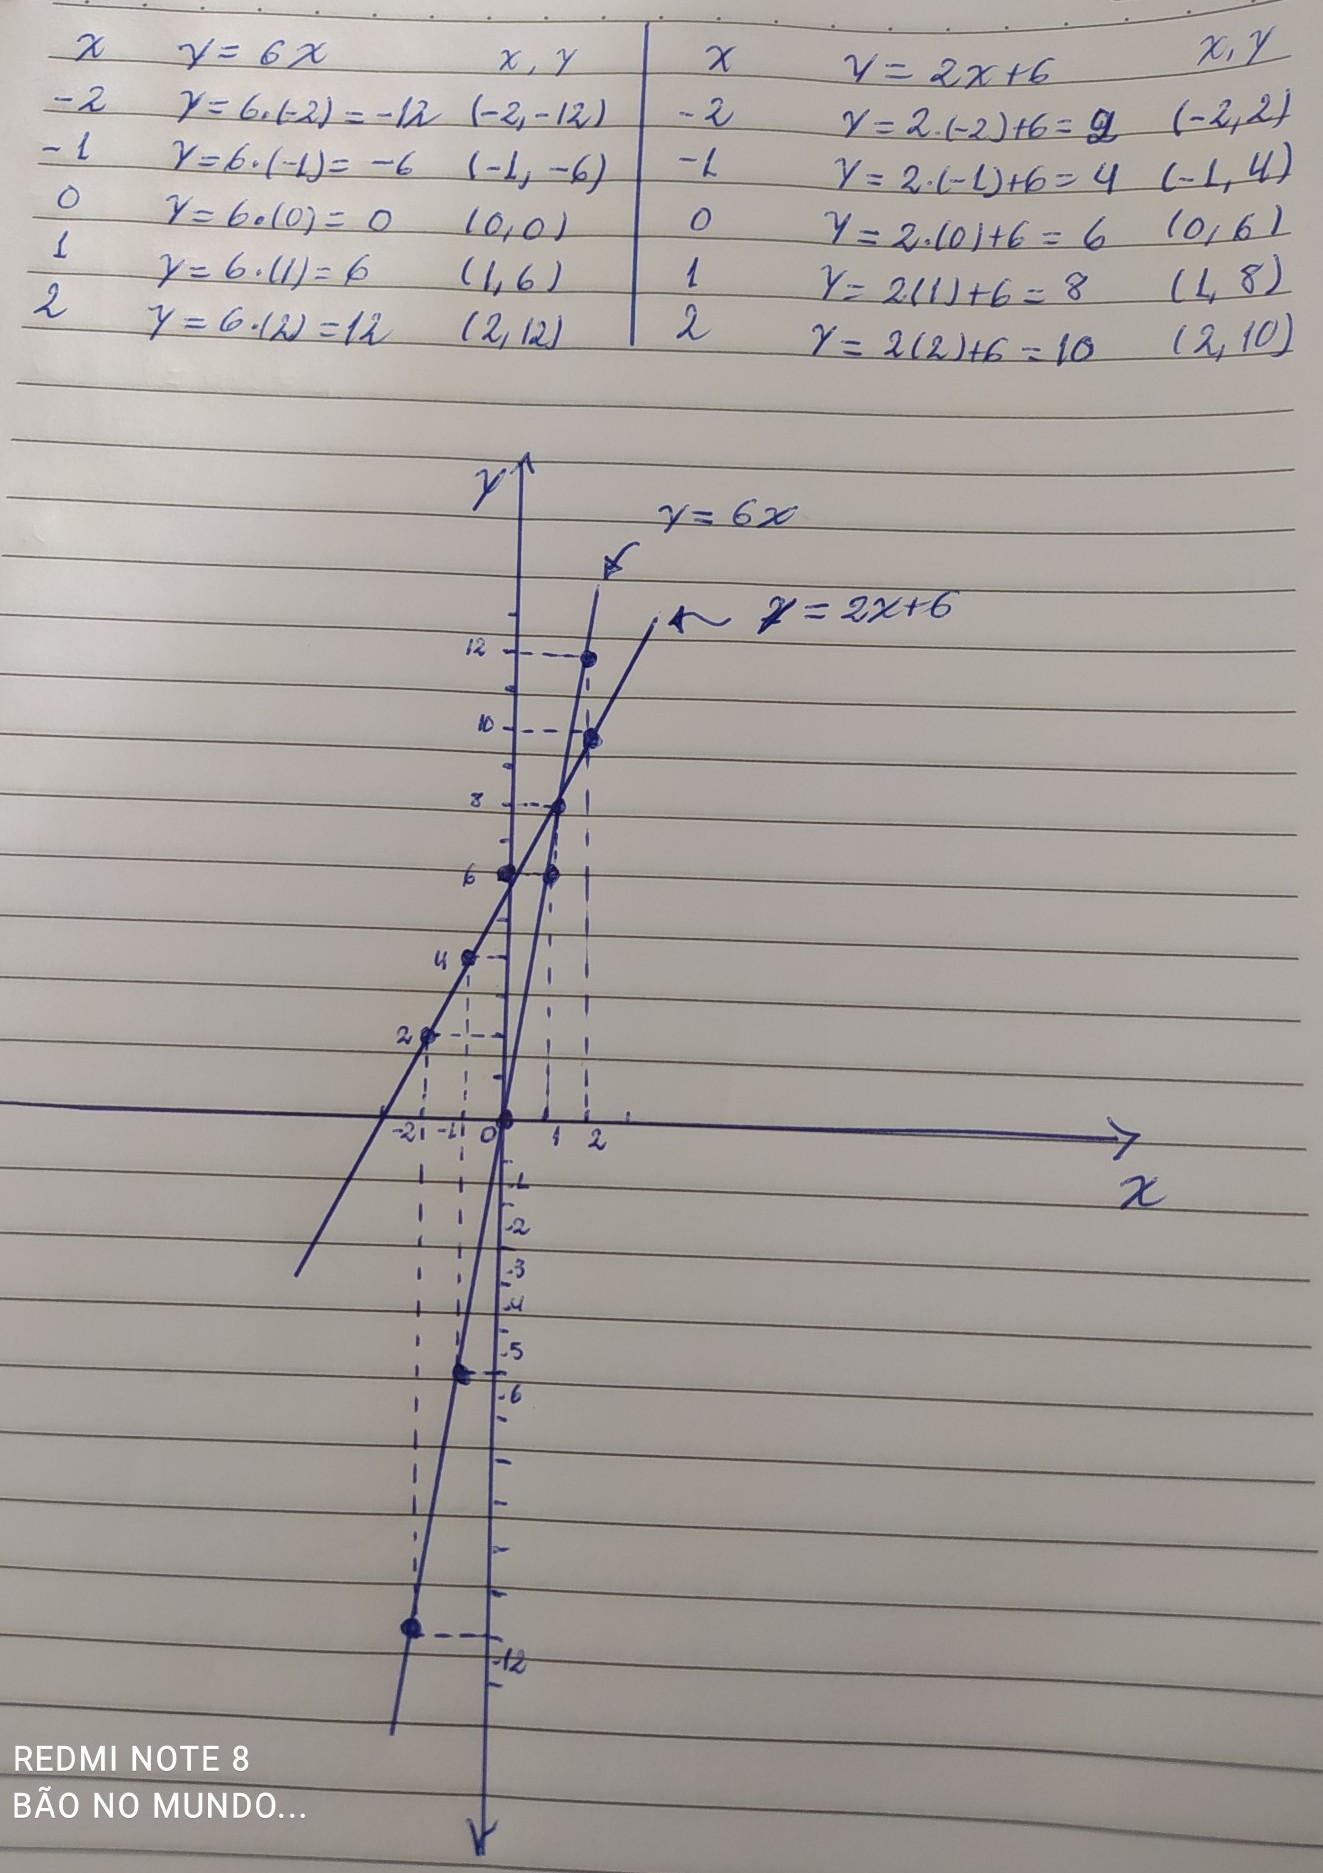 x y = 6x x, y
-2 y = 6.(-2) = -12 (-2, -12)
-1 y = 6.(-1) = -6 (-1, -6)
0 y = 6.(0) = 0 (0, 0)
1 y = 6.(1) = 6 (1, 6)
2 y = 6.(2) = 12 (2, 12)
x y = 2x+6 x, y
-2 y = 2.(-2)+6 = 2 (-2, 2)
-1 y = 2.(-1)+6 = 4 (-1, 4)
0 y = 2.(0)+6 = 6 (0, 6)
1 y = 2(1)+6 = 8 (1, 8)
2 y = 2(2)+6 = 10 (2, 10)
y
y = 6x
y = 2x+6
12
10
8
6
4
2
-2 -1 0 1 2
x
-1
-2
-3
-4
-5
-6
-12
REDMI NOTE 8
BÃO NO MUNDO...